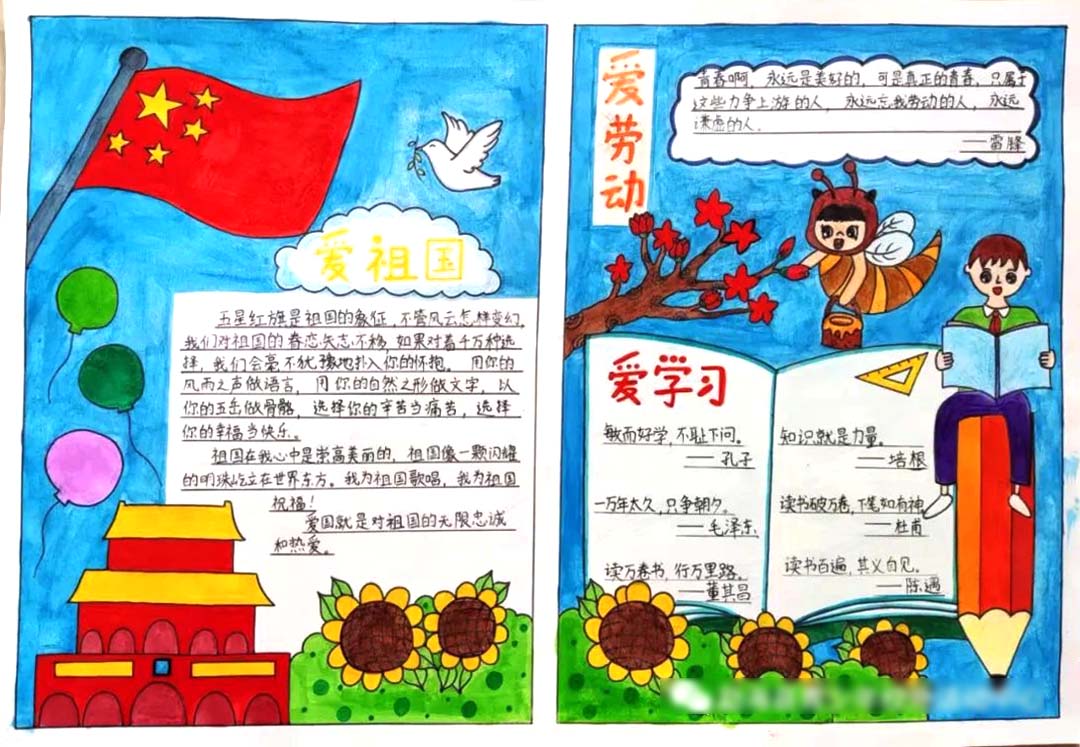 爱祖国
五星红旗是祖国的象征,不管风云怎样变幻,
我们对祖国的眷恋矢志不移,如果对着千万种选
择,我们会毫不犹豫地扑入你的怀抱。用你的
风雨之声做语言,用你的自然之形做文字,以
你的五岳做骨骼,选择你的辛苦当痛苦,选择
你的幸福当快乐。
祖国在我心中是崇高美丽的,祖国像一颗闪耀
的明珠屹立在世界东方。我为祖国歌唱,我为祖国
祝福!
爱国就是对祖国的无限忠诚
和热爱。
爱劳动
青春啊,永远是美好的,可是真正的青春,只属于
这些力争上游的人,永远忘我劳动的人,永远
谦虚的人.
——雷锋
爱学习
敏而好学,不耻下问。
——孔子
一万年太久,只争朝夕。
——毛泽东
读万卷书,行万里路。
——董其昌
知识就是力量。
——培根
读书破万卷,下笔如有神
——杜甫
读书百遍,其义自见。
——陈遇